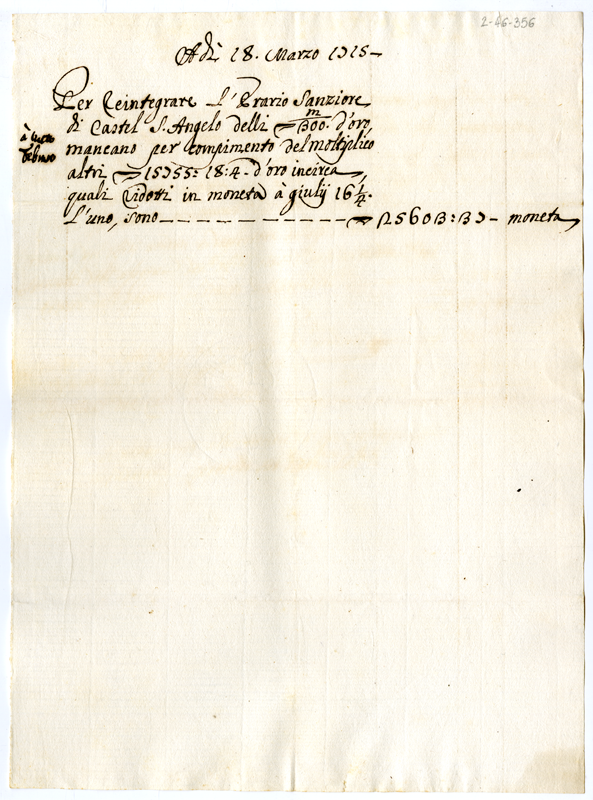 2-46-356
Adì 18. Marzo 1715 –
Per Reintegrare L'Erario Sanziore
à tutto
di Castel S. Angelo delli ▽ m/300. d'oro
mancano per compimento del moltiplico
altri ▽ 15755: 18: 4 – d'oro incirca,
quali Ridotti in moneta à giulij 16 1/4.
L'uno, sono – – – – – – – – – – – ▽ 25603: 37 – moneta